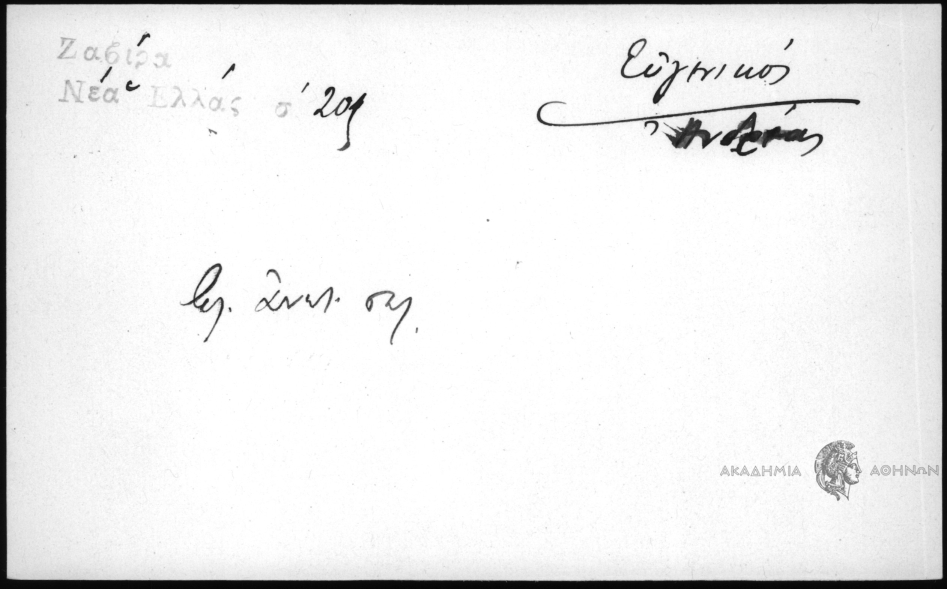 Ζαβίρα
Νέα Ἑλλάς σ 209
Εὐγενικός
Ἀνδρέας
ἀνωτ. σελ.
ΑΚΑΔΗΜΙΑ ΑΘΗΝΩΝ